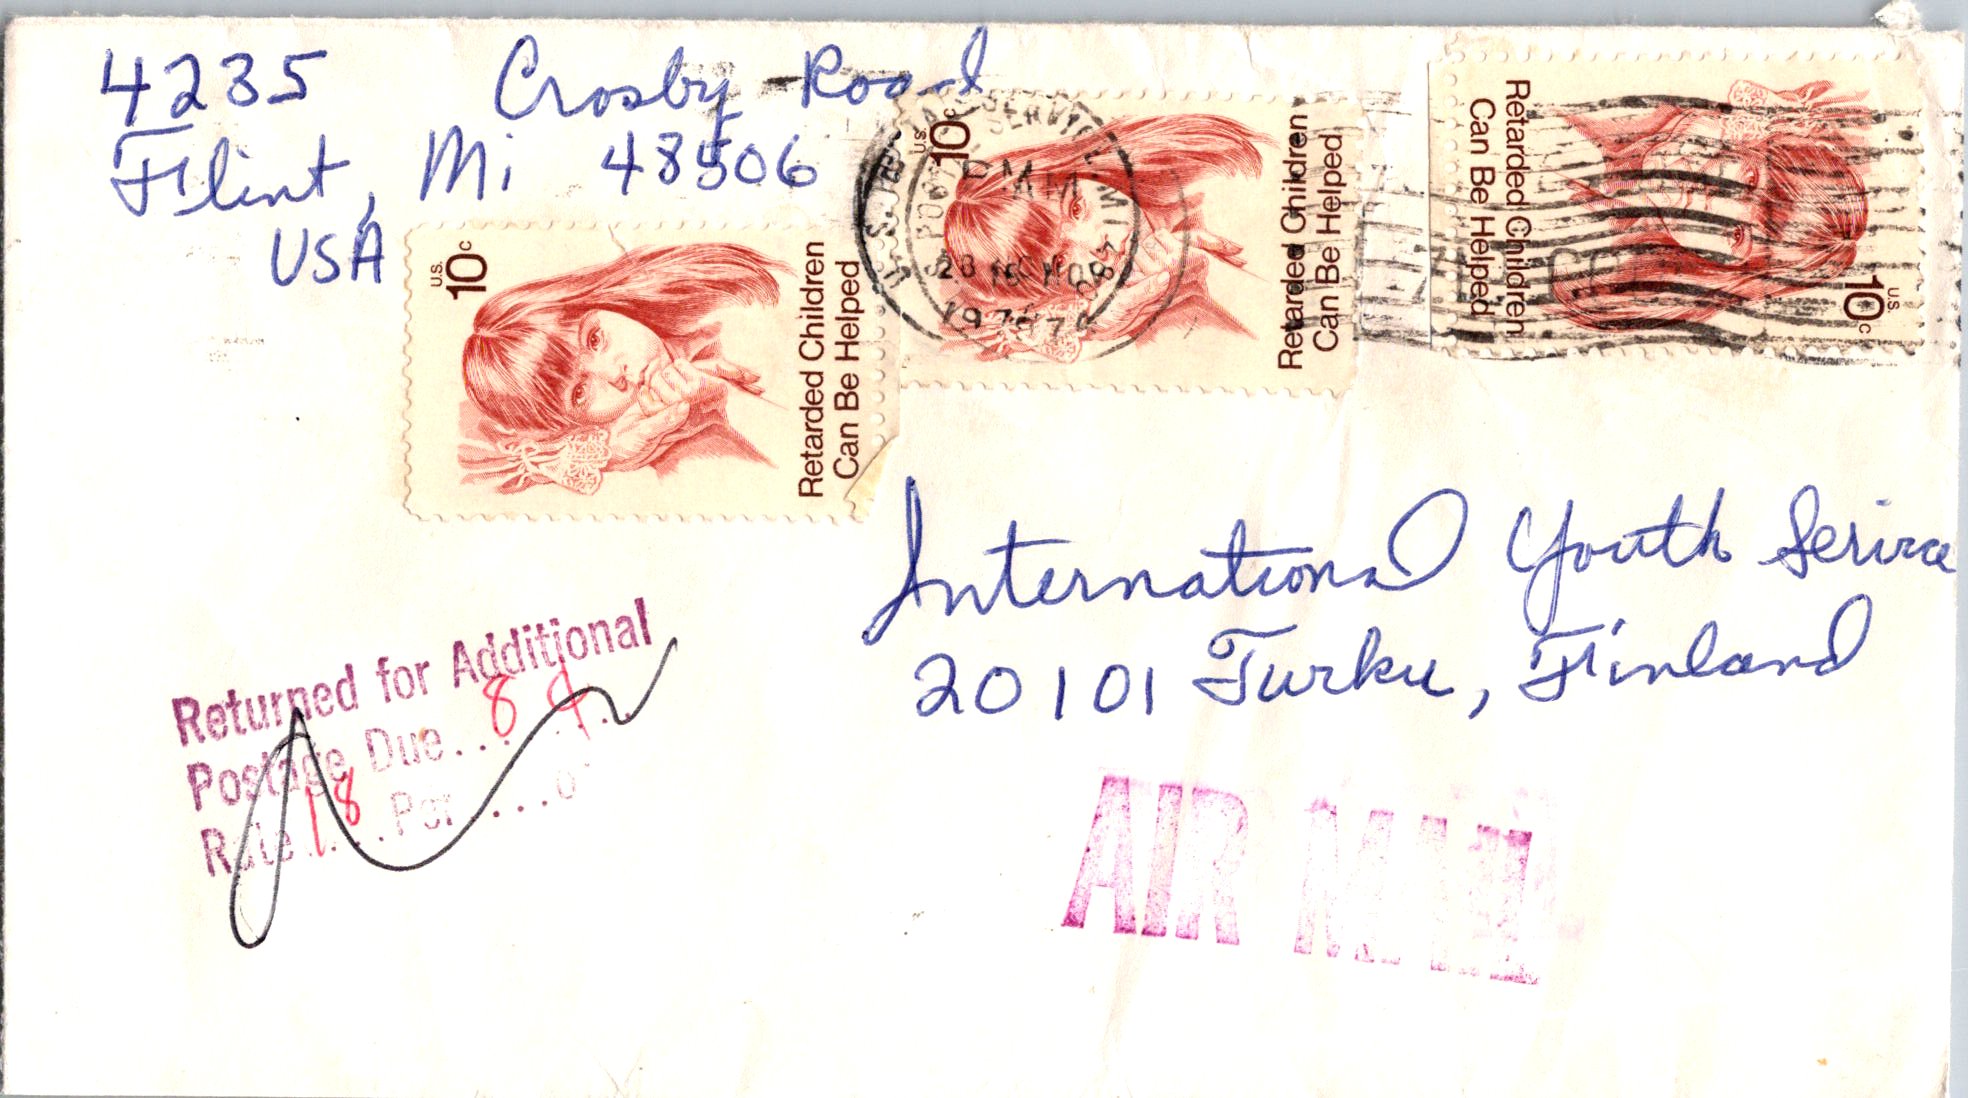 4235 Crosby Road
Flint, Mi 48506
USA
U.S. 10c
Retarded Children
Can Be Helped
U.S. 10c
Retarded Children
Can Be Helped
U.S. 10c
Retarded Children
Can Be Helped
U.S. POSTAL SERVICE MI
PM
International Youth Serivce
20101 Turku, Finland
Returned for Additional
Postage Due.. 8¢..
Rate 18.. Per ....
AIR MAIL